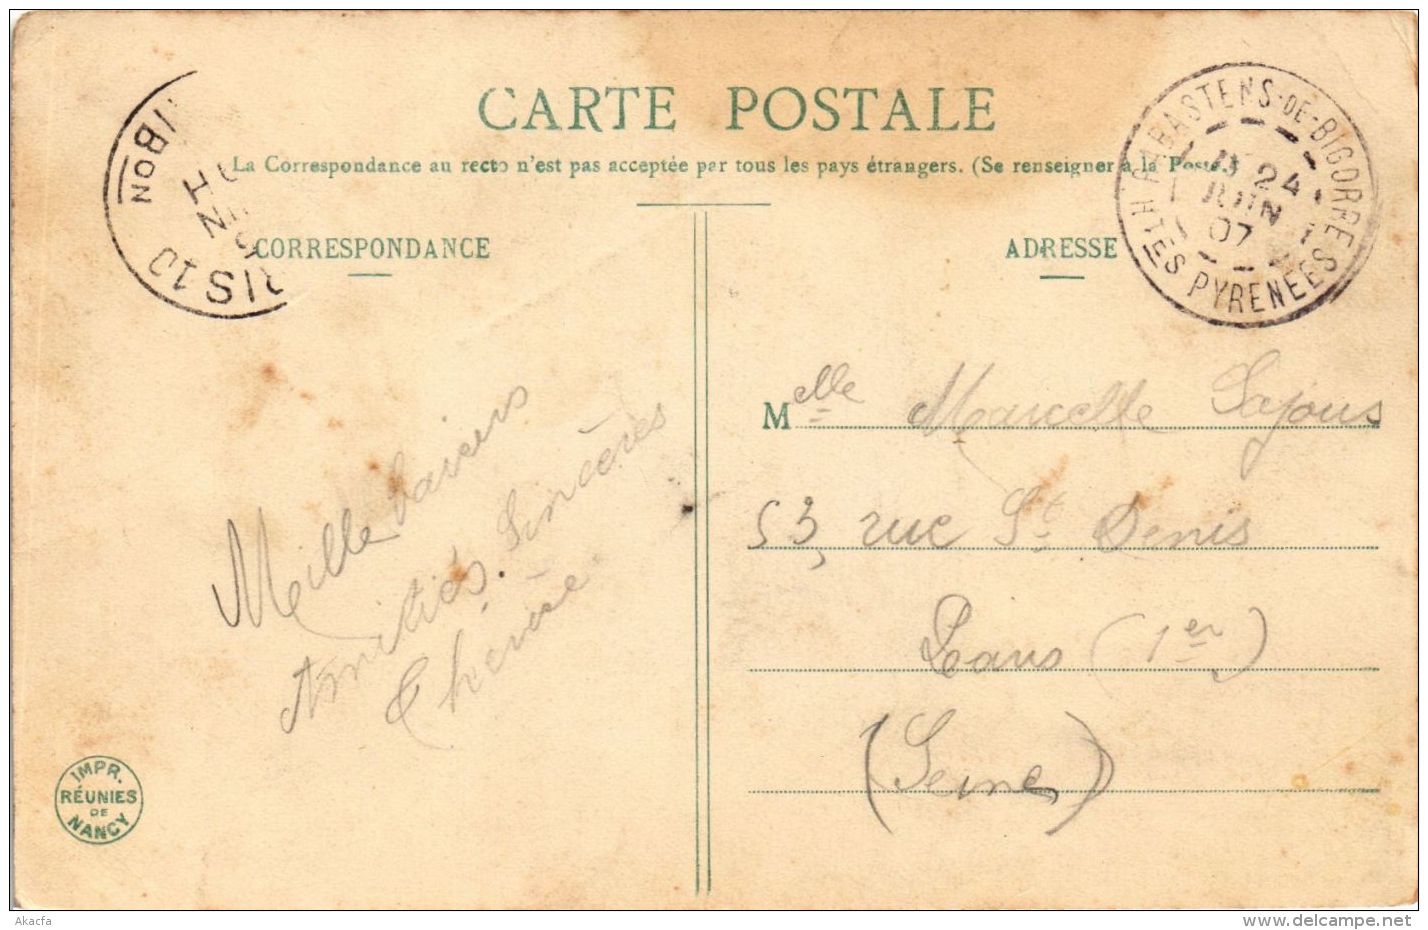 CARTE POSTALE
La Correspondance au recto n'est pas acceptée par tous les pays étrangers. (Se renseigner à la Poste.)
CORRESPONDANCE
ADRESSE
RABASTENS-DE-BIGORRE
24
JUIN
07
HTES PYRENEES
RIS 10
Mille baisers
Amitiés Sincères
Melle Marcelle Lajous
53, rue St Denis
Paris (1er)
(Seine)
IMPR.
RÉUNIES
DE
NANCY
Akacfa
delcampe.net